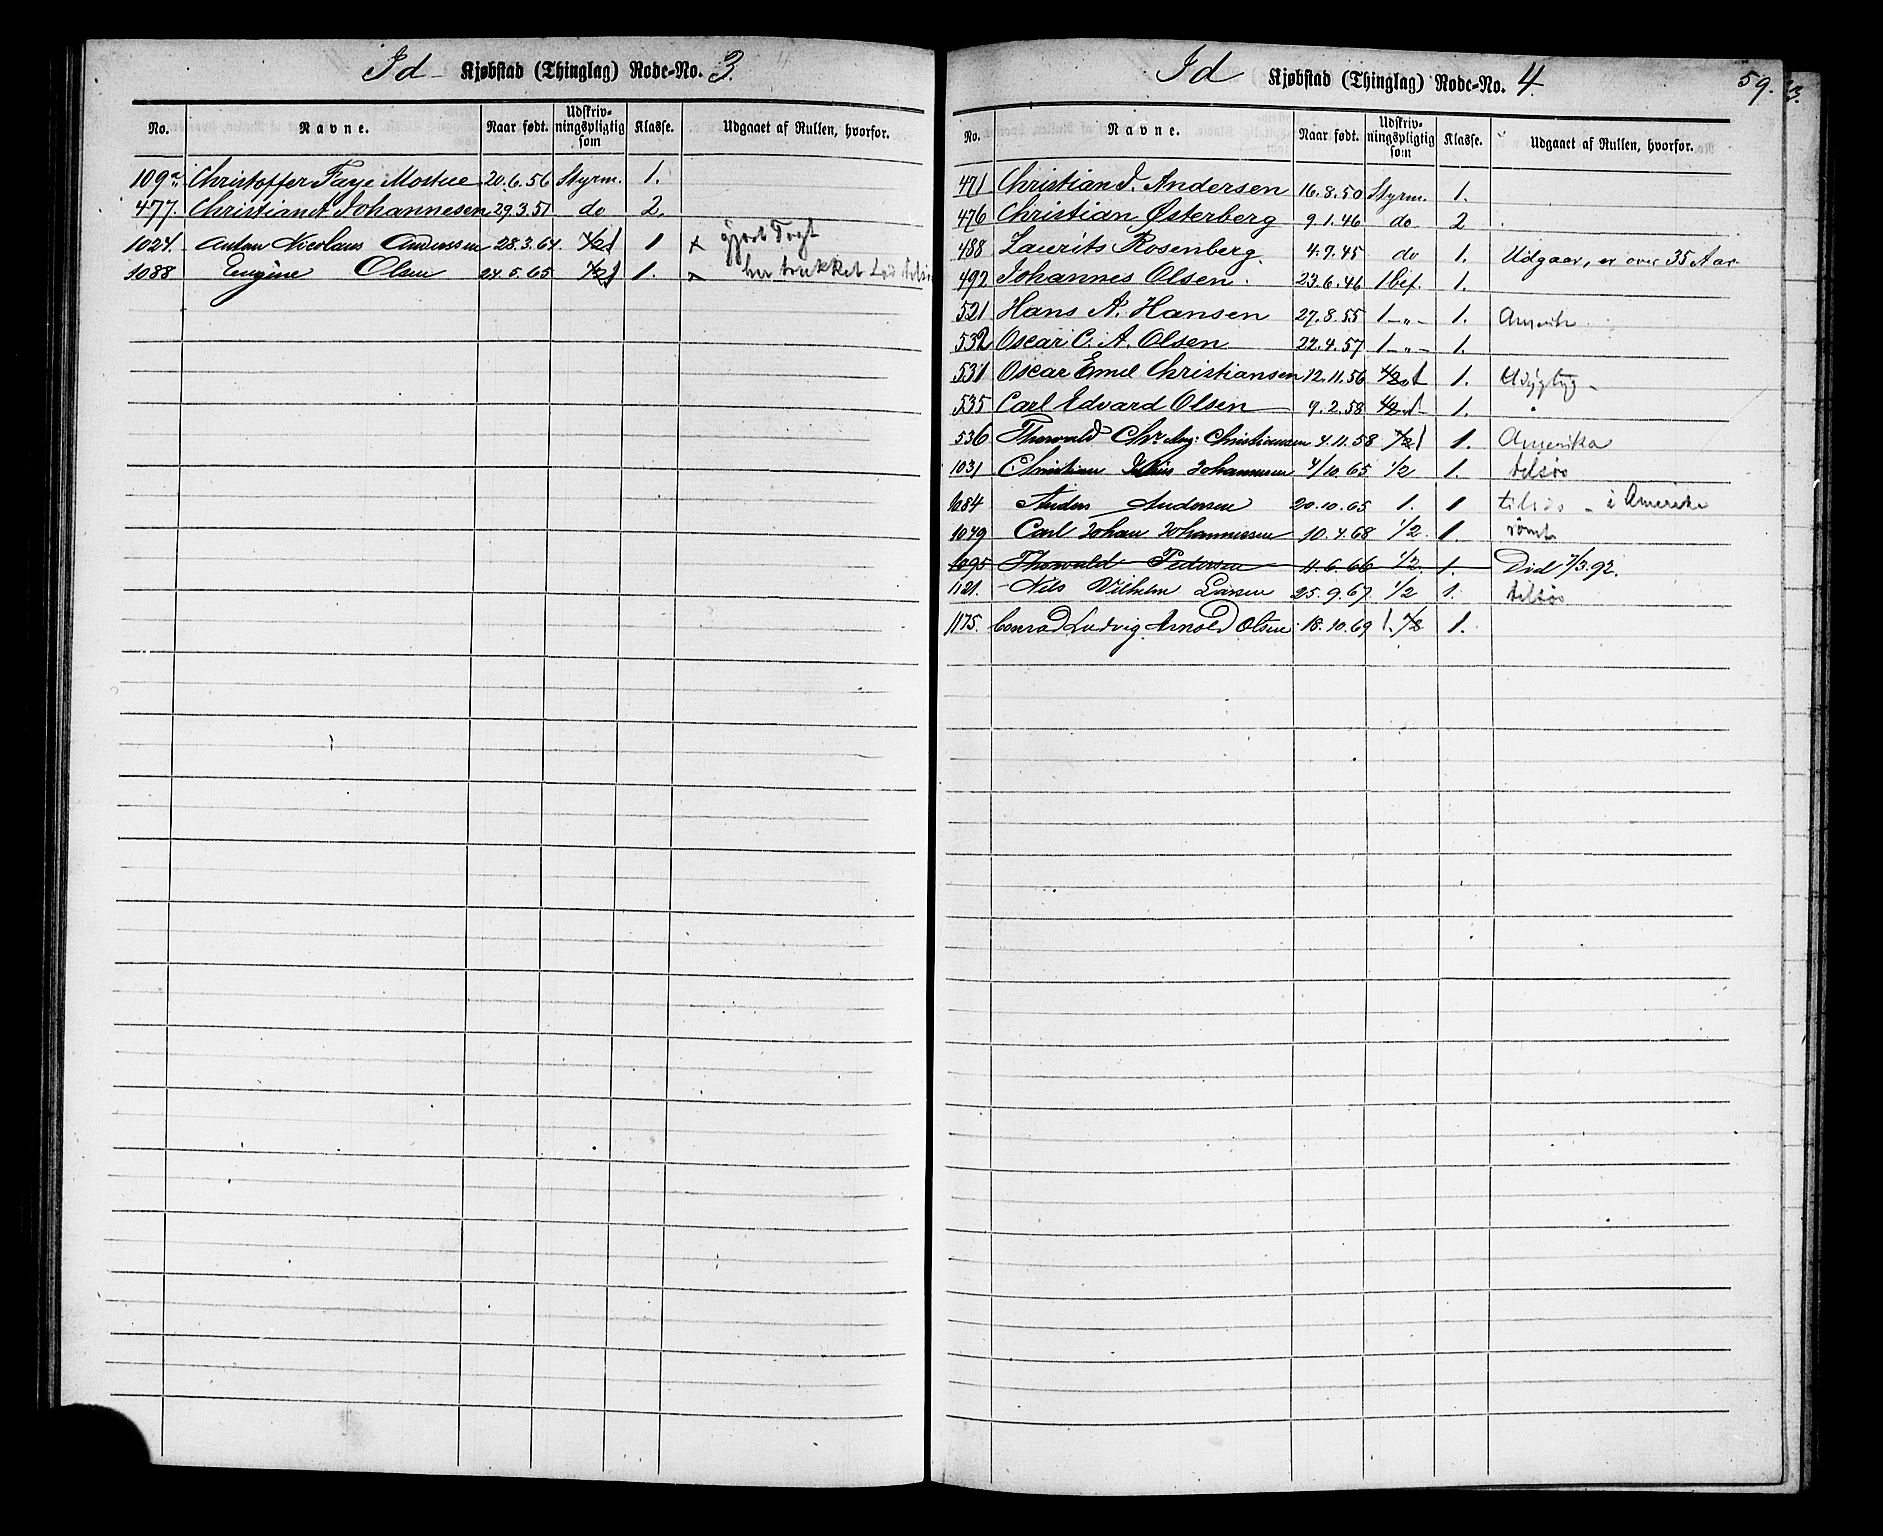 Id Kjøbstad (Thinglag) Rode-No. 3.
No. Navne. Naar født. Udskrivningspligtig som Klasse. Udgaaet af Rullen, hvorfor.
109a Christoffer Faye Mostue 20.6.56 Styrm. 1.
477. Christian A Johannesen 29.3.51 do 2.
1024. Anton Nicolaus Anderssen 28.3.64. 1/2 1 1 x gjort Togt
1088 Eugène Olsen 24.5.65 1/2 1 1. x har trukket Lod
Id Kjøbstad (Thinglag) Rode-No. 4. 59.
No. Navne. Naar født. Udskrivningspligtig som Klasse. Udgaaet af Rullen, hvorfor.
471 Christian J. Andersen 16.8.50 Styrm. 1.
476 Christian Østerberg 9.1.46 do 2
488 Laurits Rosenberg. 4.9.45 do 1. Udgaar, er over 35 Aar
492 Johannes Olsen 23.6.46 1 bef. 1.
521 Hans A. Hansen 27.8.55 1 -"- 1. Amerik
532 Oscar C. A. Olsen 22.4.57 1 -"- 1.
531 Oscar Emil Christiansen 12.11.56 1/2 1 1.
535 Carl Edvard Olsen 9.2.58 1/2 1 1. "
536 Thorvald Chr. Aug. Christiansen 4.11.58 1/2 1 1. Amerika
1031 Christian Julius Johannesen 4/10.65 1/2 1. tilsøs
1084 Anders Andersen 20.10.65 1. 1 tilsøs - i Amerika
1049 Carl Johan Johannessen 10.4.68 1/2 1. rømt
1095 Thorvald Pedersen 11.6.66 1/2 1. Död 7/3.92.
1121. Nils Vilhelm Larsen 25.9.67 1/2 1. tilsøs
1175. Conrad Ludvig Arnold Olsen 18.10.69 1. 1/2 1.